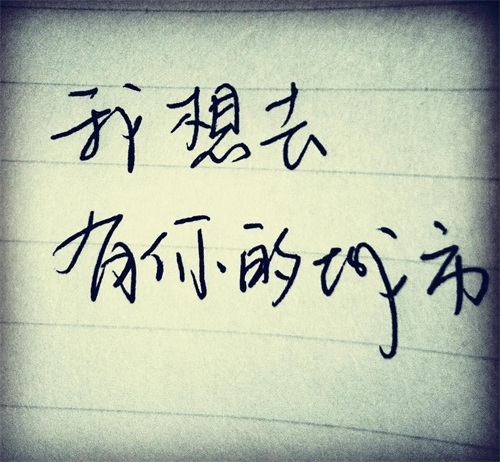 我想去
有你的城市